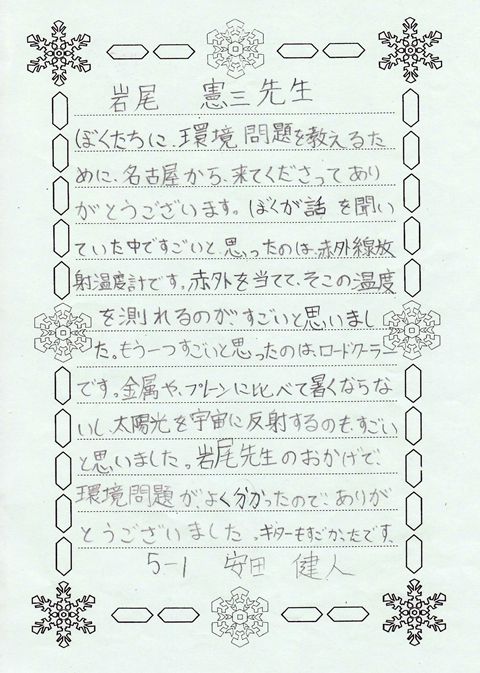 岩尾 憲三先生
ぼくたちに、環境問題を教えるた
めに、名古屋から、来てくださってあり
がとうございます。ぼくが話を聞い
ていた中ですごいと、思ったのは、赤外線放
射温度計です。赤外を当てて、そこの温度
を測れるのが、すごいと思いまし
た。もう一つすごいと思ったのは、ロードクーラー
です。金属や、プレーンに比べて暑くならな
いし、太陽光を宇宙に反射するのも、すごい
と思いました。岩尾先生のおかげで、
環境問題が、よく分かったので、ありが
とうございました。ギターもすごかったです。
5-1 安田 健人